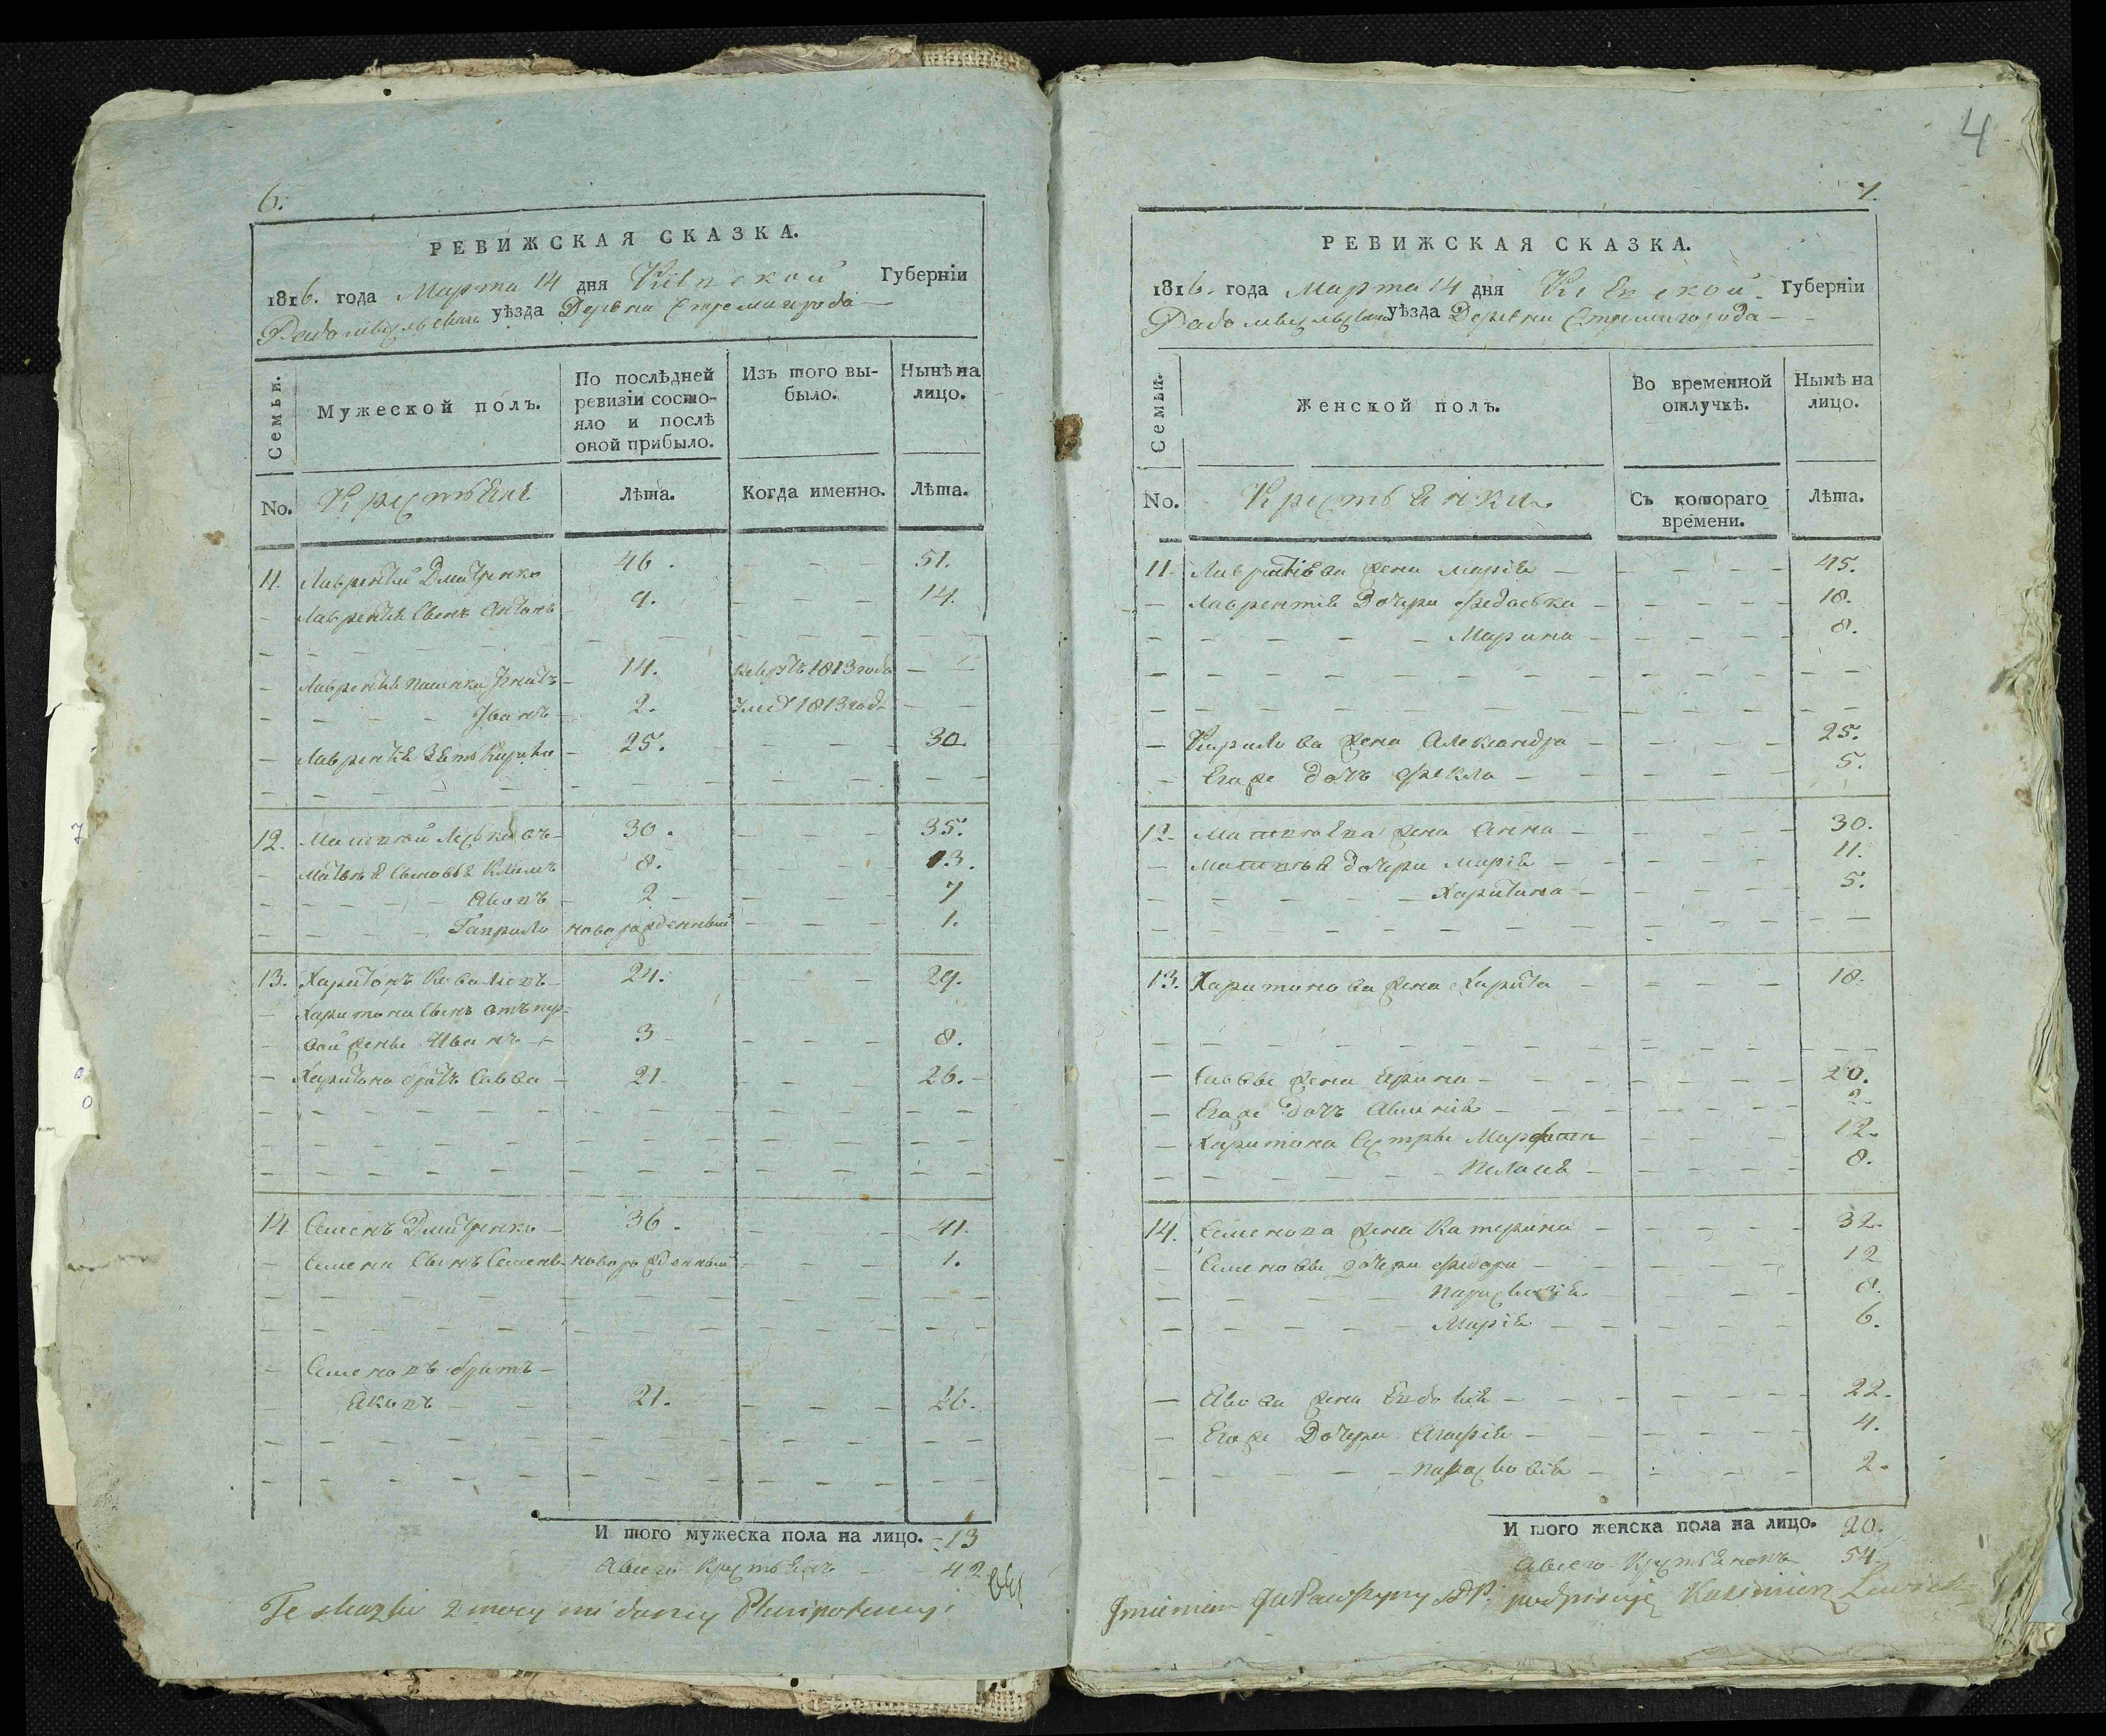 6.
РЕВИЖСКАЯ СКАЗКА.
1816. года Марта 14 дня Кіевской Губерніи
Радомысльскаго уѣзда Деревни Стремигорода
Семьи.
Мужеской полъ.
По послѣдней ревизіи состояло и послѣ оной прибыло.
Изъ того выбыло.
Нынѣ на лицо.
No. Крестьяне Лѣта. Когда именно. Лѣта.
11. Лаврентій Дмитренко 46. 51.
Лаврентія Сынъ Антонъ 9. 14.
Лаврентія пасынки Игнатъ 14. 1813 года
Иванъ 2. 1813 года
Лаврентія Зять Кирило 25. 30
12. Матвій 30. 35.
Матвѣя Сыновья Климъ 8. 13.
Яковъ 2 7
Гаврило новорожденный 1.
13. Харитонъ Ковалювъ 24. 29.
Харитона Сынъ отъ пер-
вой жены Иванъ 3 8.
Харитона братъ Савва 21. 26.
14 Семенъ Дмитренко 36. 41.
Семена Сынъ Семенъ новорожденный 1.
Семеновъ братъ
Яковъ 21. 26.
И того мужеска пола на лицо. 13
Авсего Крестьянъ 42
Te skazki z mocy mi daney Plenipotencyi
4
7.
РЕВИЖСКАЯ СКАЗКА.
1816. года Марта 14 дня Кіевской Губерніи
Радомысльскаго уѣзда Деревни Стремигорода
Семьи.
Женской полъ.
Во временной отлучкѣ.
Нынѣ на лицо.
No. Крестьянки Съ котораго времени. Лѣта.
11. Лаврентіева жена Марія 45.
Лаврентія Дочери Федоська 18.
Марина 8.
Кирилова жена Александра 25.
Егоже дочь Фекла 5.
12. Матвіева жена Анна 30.
Матвія дочери Марія 11.
Харитина 5.
13. Харитонова жена Харита 18.
Саввы жена Ирина 20.
Егоже дочь 2
Харитона Сестры Марфа 12.
Пелагія 8.
14. Семенова жена Катерина 32.
Семеновы дочери Федора 12
Парасковія 8.
Марія 6.
жена Евдокія 22.
Егоже Дочери Агафія 4.
Парасковія 2.
И того женска пола на лицо. 20.
Авсего Крестьянокъ 54.
Imieniem podpisuję Kazimierz